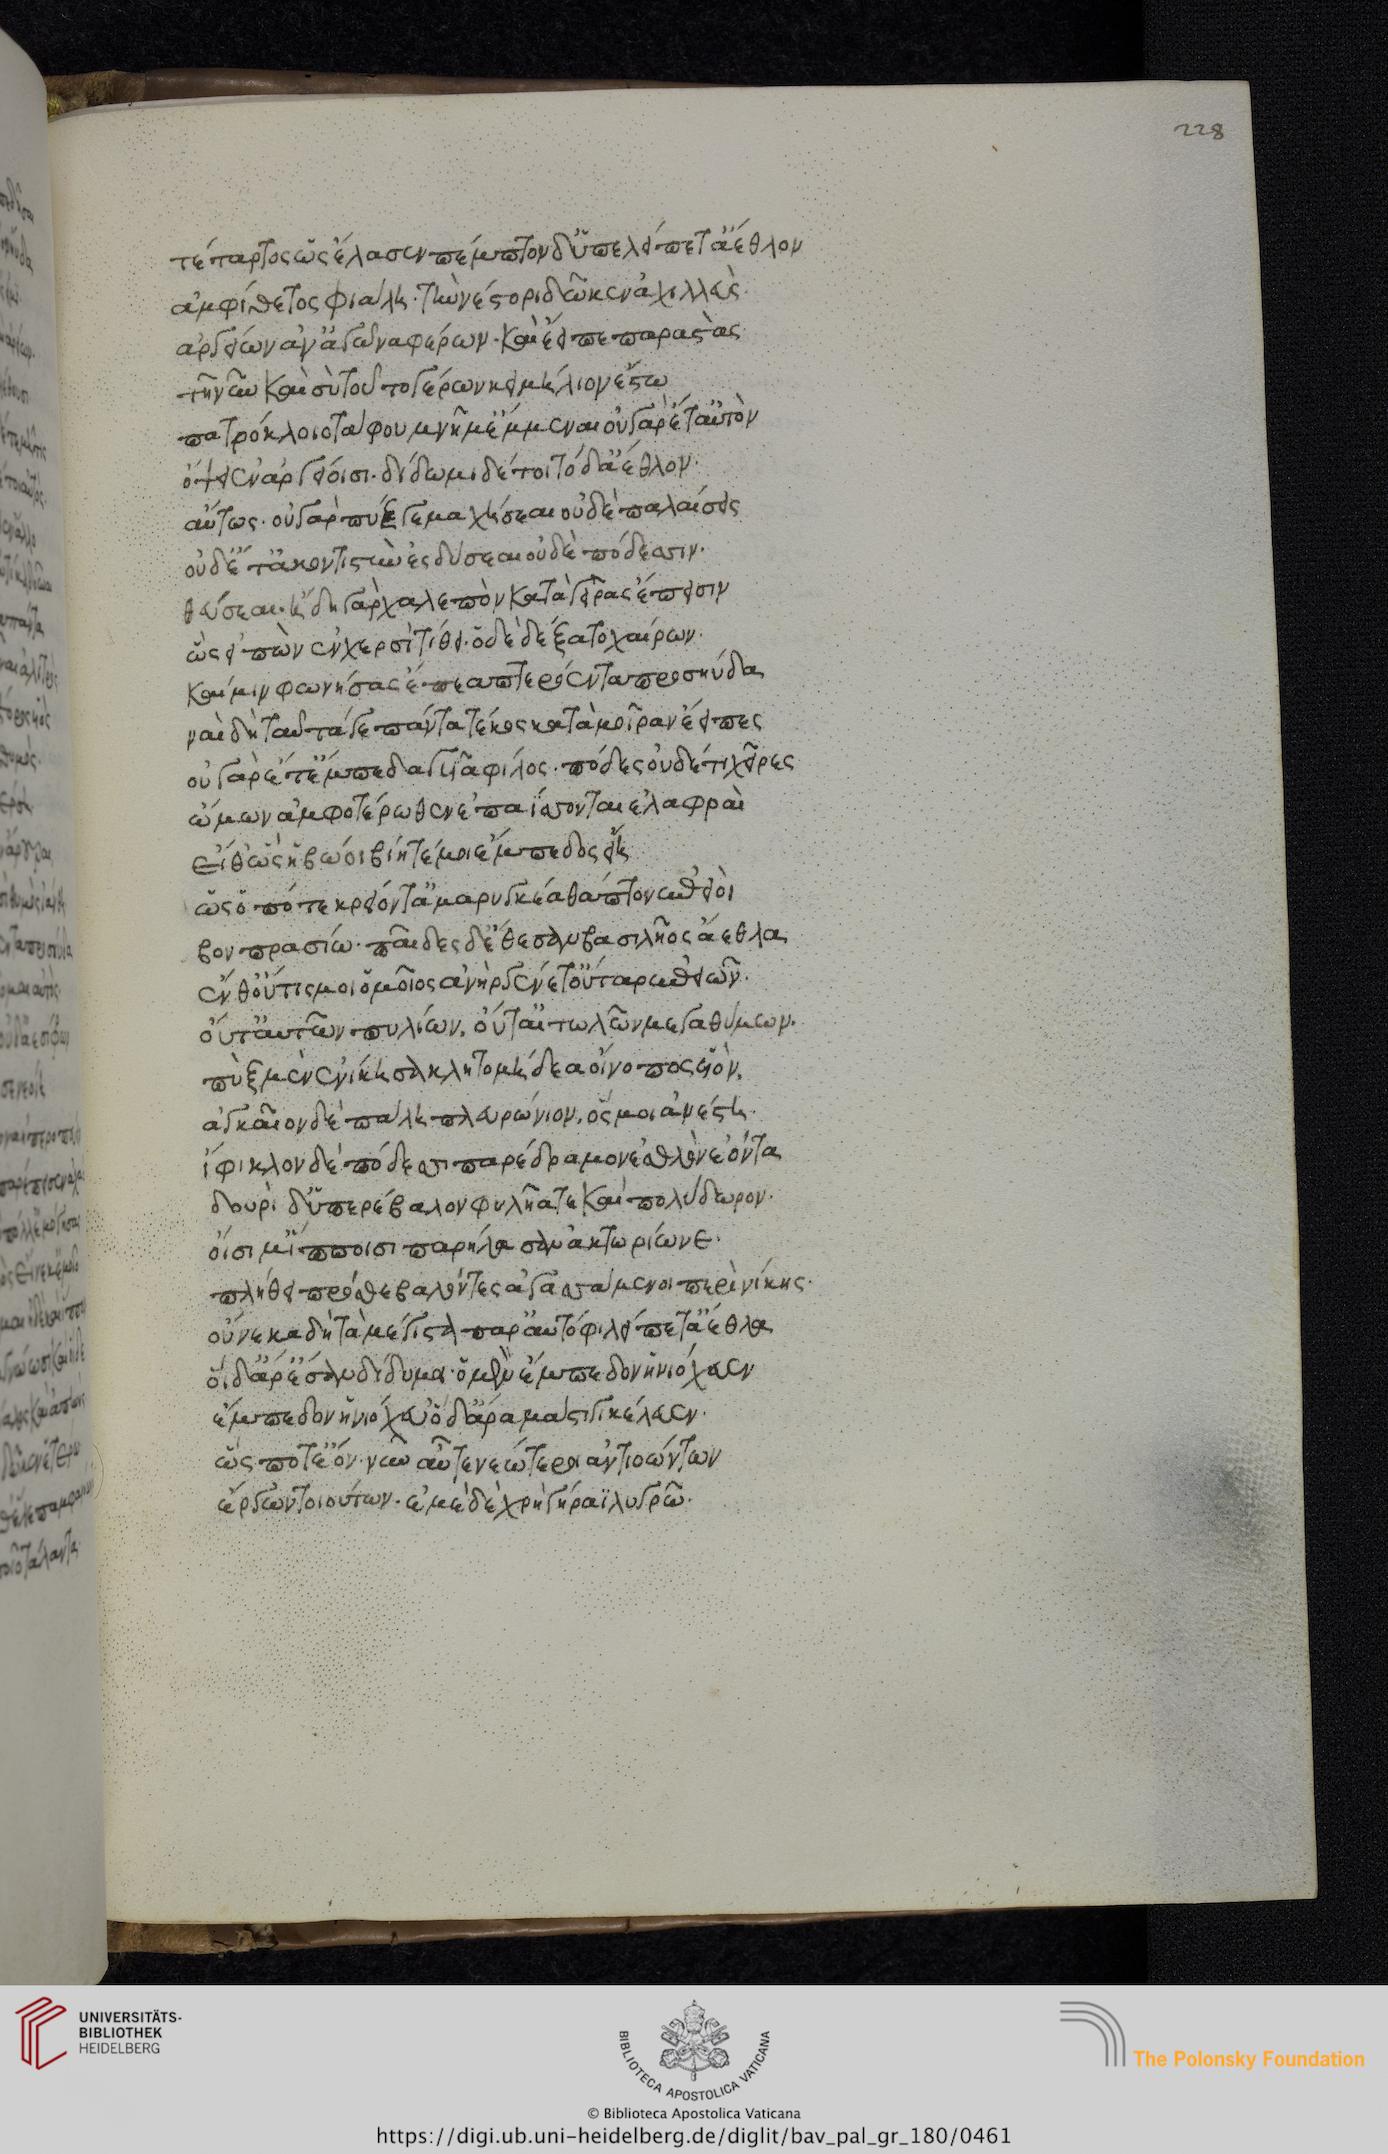 228
τέταρτος ὣς ἔλασεν πέμπτον δ' ὑπελείπετ' ἄεθλον
ἀμφίθετος φιάλη· τὴν νέστορι δῶκεν ἀχιλλεὺς·
ἀργείων ἀν' ἀγῶνα φέρων· καὶ ἔειπε παραστὰς
τῆ νῦν καὶ σὺ τοῦτο γέρων κειμήλιον ἔστω
πατρόκλοιο τάφου μνῆμ' ἔμμεναι οὐ γὰρ ἔτ' αὐτὸν
ὄψει ἐν ἀργείοισι· δίδωμι δέ τοι τόδ' ἄεθλον·
αὔτως· οὐ γὰρ πύξ γε μαχήσεαι οὐδὲ παλαίσεις
οὐδέ τ' ἀκοντιστὺν ἐσδύσεαι οὐδὲ πόδεσσιν·
θεύσεαι· ἤδη γὰρ χαλεπὸν κατὰ γῆρας ἐπείσιν
ὣς εἰπὼν ἐν χερσὶ τίθει· ὃ δὲ δέξατο χαίρων·
καί μιν φωνήσας ἔπεα πτερόεντα προσηύδα
ναὶ δὴ ταῦτά γε πάντα τέκος κατὰ μοῖραν ἔειπες
οὐ γὰρ ἔτ' ἔμπεδα γυῖα φίλος· πόδες οὐδέ τι χεῖρες
ὤμων ἀμφοτέρωθεν ἐπαίσσονται ἐλαφραὶ
εἴθ' ὣς ἡβώοιμι βίη τέ μοι ἔμπεδος εἴη
ὣς ὁπότε κρείοντ' ἀμαρυγκέα θάπτον ἐπειοὶ
βουπρασίω· παῖδες δ' ἔθεσαν βασιλῆος ἄεθλα
ἔνθ' οὔτις μοι ὁμοῖος ἀνὴρ γένετ' οὔτ' ἄρ' ἐπειῶν·
οὔτ' αὐτῶν πυλίων, οὔτ' αἰτωλῶν μεγαθύμων·
πὺξ μὲν ἐνίκησα κλητομήδεα οἴνοπος υἱὸν,
ἀγκαῖον δὲ πάλη πλευρώνιον, ὅς μοι ἀνέστη·
ἴφικλον δὲ πόδεσσι παρέδραμον ἐσθλὸν ἐόντα
δουρὶ δ' ὑπερέβαλον φυλῆά τε καὶ πολύδωρον·
οἴοισί μ' ἵπποισι παρήλασαν ἀκτορίωνε·
πλήθει πρόσθε βαλόντες ἀγασσάμενοι περὶ νίκης·
οὕνεκα δὴ τὰ μέγιστα παρ' αὐτόφι λείπετ' ἄεθλα
οἱ δ' ἄρ' ἔσαν δίδυμοι· ὁ μὲν ἔμπεδον ἡνιόχευεν
ἔμπεδον ἡνιόχευ' ὁ δ' ἄρα μάστιγι κέλευεν·
ὥς ποτ' ἔον· νῦν αὖτε νεώτεροι ἀντιοώντων
ἔργων τοιούτων· ἐμὲ δὲ χρὴ γήραϊ λυγρῶ·
UNIVERSITÄTS-
BIBLIOTHEK
HEIDELBERG
BIBLIOTECA APOSTOLICA VATICANA
The Polonsky Foundation
© Biblioteca Apostolica Vaticana
https://digi.ub.uni-heidelberg.de/diglit/bav_pal_gr_180/0461